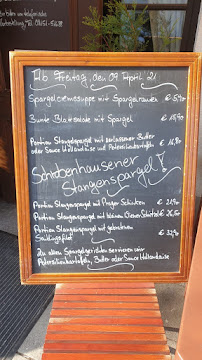 Ab Freitag, den 09. April '21
Spargelcremesuppe mit Spargelravioli € 5,90
Bunte Blattsalate mit Spargel € 15,90
Portion Stangenspargel mit zerlassener Butter
oder Sauce Hollandaise und Petersilienkartoffeln € 16,90
Schrobenhausener
Stangenspargel!
Portion Stangenspargel mit Prager Schinken € 21,90
Portion Stangenspargel mit kleinem Wiener Schnitzel € 26,50
Portion Stangenspargel mit gebratenem € 32,90
Zu allen Spargelgerichten servieren wir
Petersilienkartoffeln, Butter oder Sauce Hollandaise